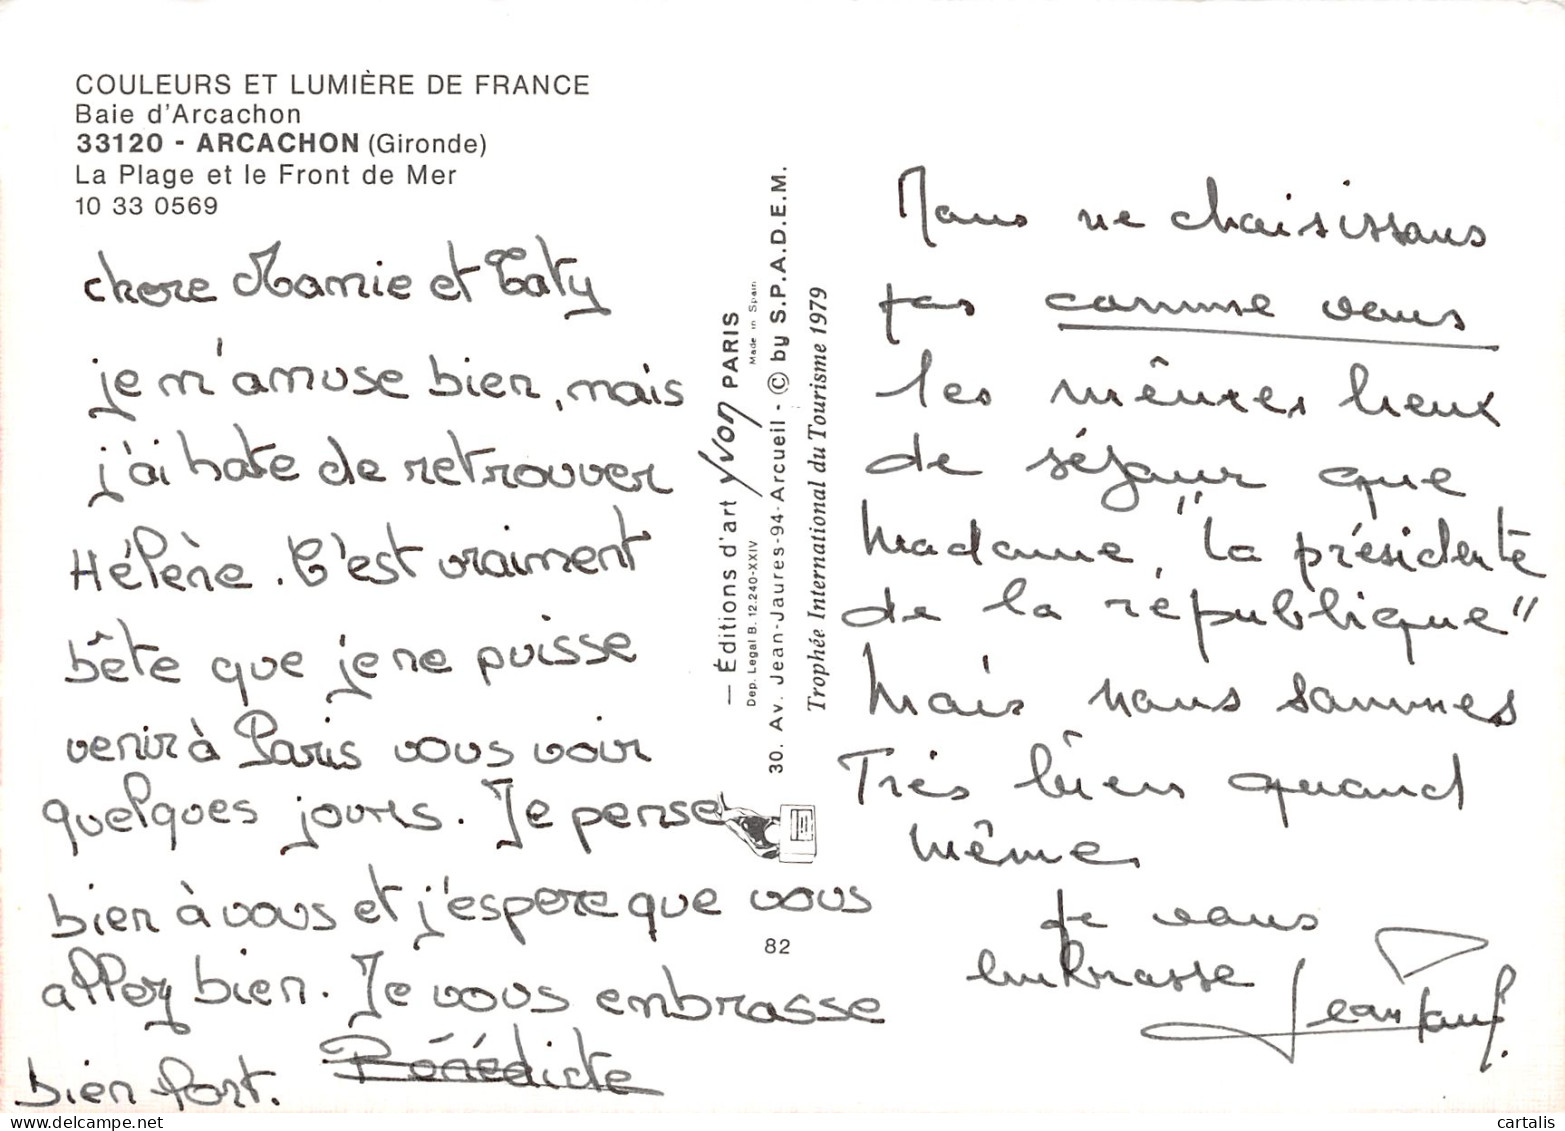 COULEURS ET LUMIÈRE DE FRANCE
Baie d'Arcachon
33120 - ARCACHON (Gironde)
La Plage et le Front de Mer
10 33 0569
chere Mamie et Taty
je m'amuse bien, mais
j'ai hate de retrouver
Hélène. C'est vraiment
bête que je ne puisse
venir à Paris vous voir
quelques jours. Je pense
bien à vous et j'espere que vous
allez bien. Je vous enbrasse
bien fort. Bénédicte
— Éditions d'art Yvon PARIS
Dep. Legal B. 12.240-XXIV Made in Spain
30. Av. Jean-Jaures-94-Arcueil - © by S.P.A.D.E.M.
Trophée International du Tourisme 1979
82
Nous ne choisissons
pas comme vous
les mêmes lieux
de séjour que
Madame "la présidente
de la république"
Mais nous sommes
Très bien quand
même
Je vous
embrasse
Jean Paul
cartalis